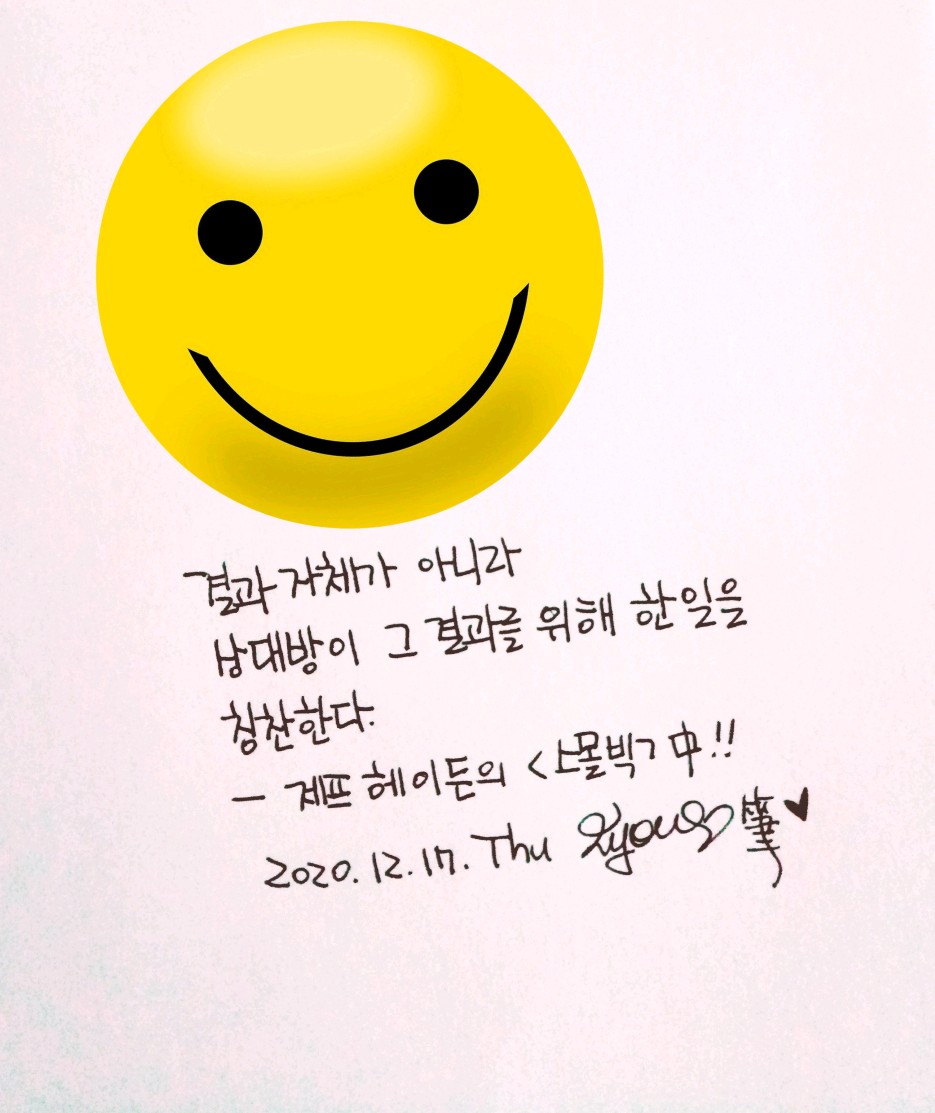 결과 자체가 아니라
상대방이 그 결과를 위해 한 일을
칭찬한다.
- 제프 헤이든의 <스몰빅> 中!!
2020.12.17. Thu 筆♥